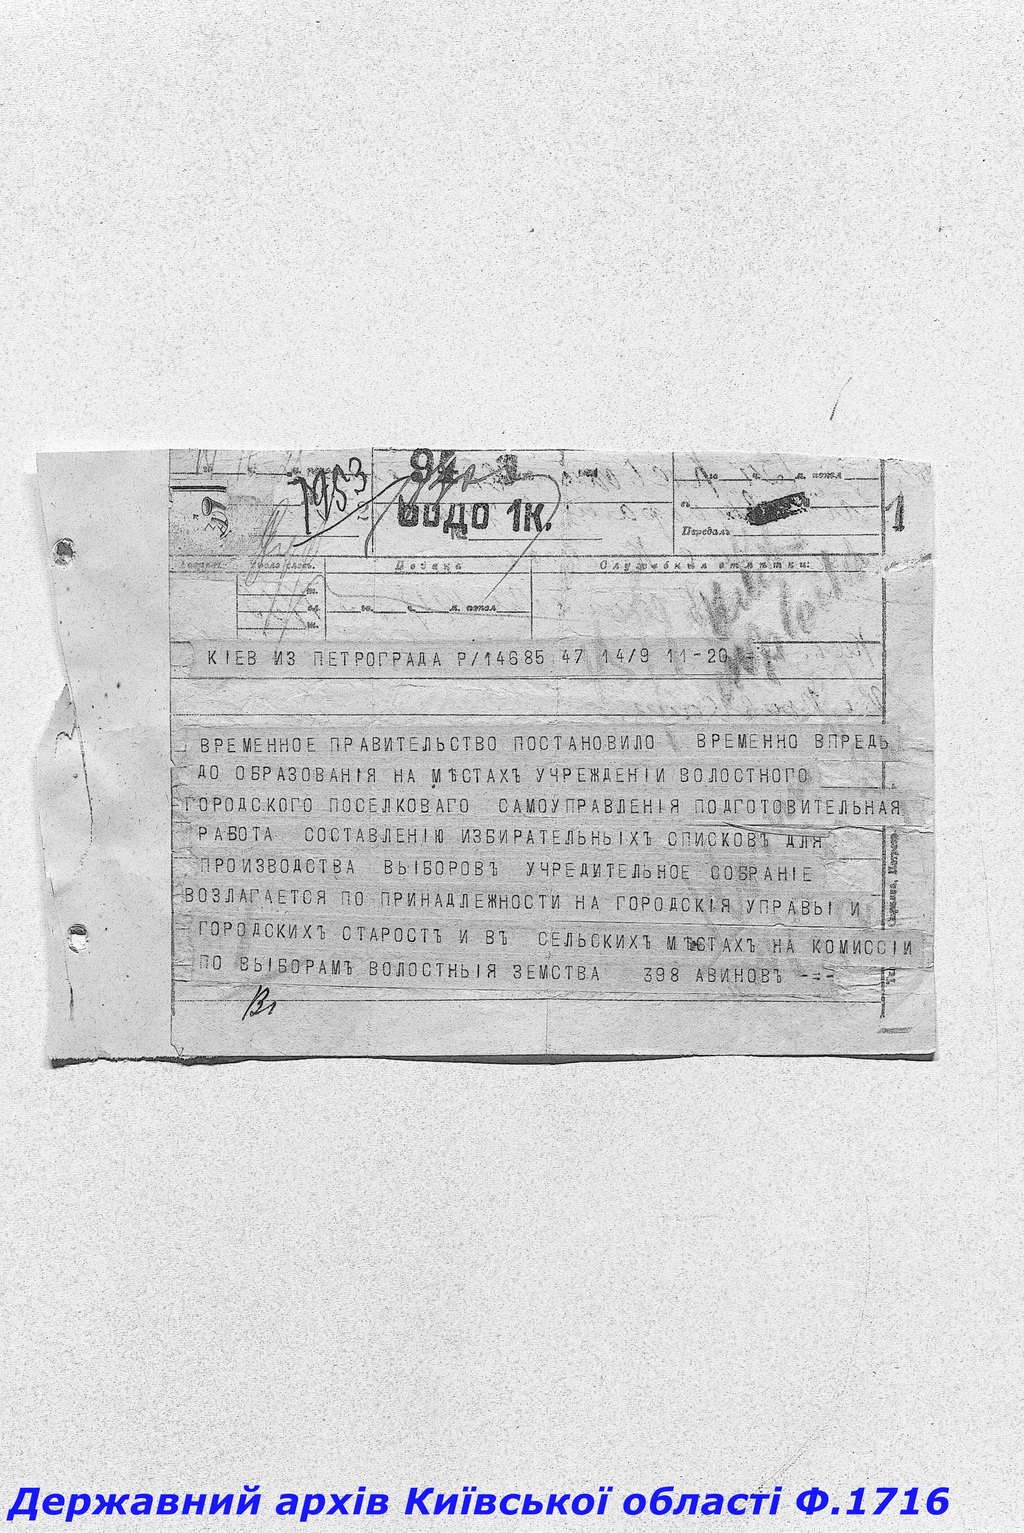 1953
94
БОДО 1К.
1
Передалъ
Подача
Служебныя отмѣтки:
сл.
ч. м. попол
КІЕВ ИЗ ПЕТРОГРАДА Р/14685 47 14/9 11-20 =
ВРЕМЕННОЕ ПРАВИТЕЛЬСТВО ПОСТАНОВИЛО ВРЕМЕННО ВПРЕДЬ
ДО ОБРАЗОВАНІЯ НА МѢСТАХЪ УЧРЕЖДЕНІИ ВОЛОСТНОГО
ГОРОДСКОГО ПОСЕЛКОВАГО САМОУПРАВЛЕНІЯ ПОДГОТОВИТЕЛЬНАЯ
РАБОТА СОСТАВЛЕНІЮ ИЗБИРАТЕЛЬНЫХЪ СПИСКОВЪ ДЛЯ
ПРОИЗВОДСТВА ВЫБОРОВЪ УЧРЕДИТЕЛЬНОЕ СОБРАНІЕ
ВОЗЛАГАЕТСЯ ПО ПРИНАДЛЕЖНОСТИ НА ГОРОДСКІЯ УПРАВЫ И
ГОРОДСКИХЪ СТАРОСТЪ И ВЪ СЕЛЬСКИХЪ МѢСТАХЪ НА КОМИССІИ
ПО ВЫБОРАМЪ ВОЛОСТНЫЯ ЗЕМСТВА 398 АВИНОВЪ -=-
Державний архів Київської області Ф.1716